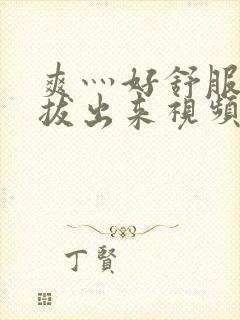 爽灬好舒服
拔出来視頻
丁賢